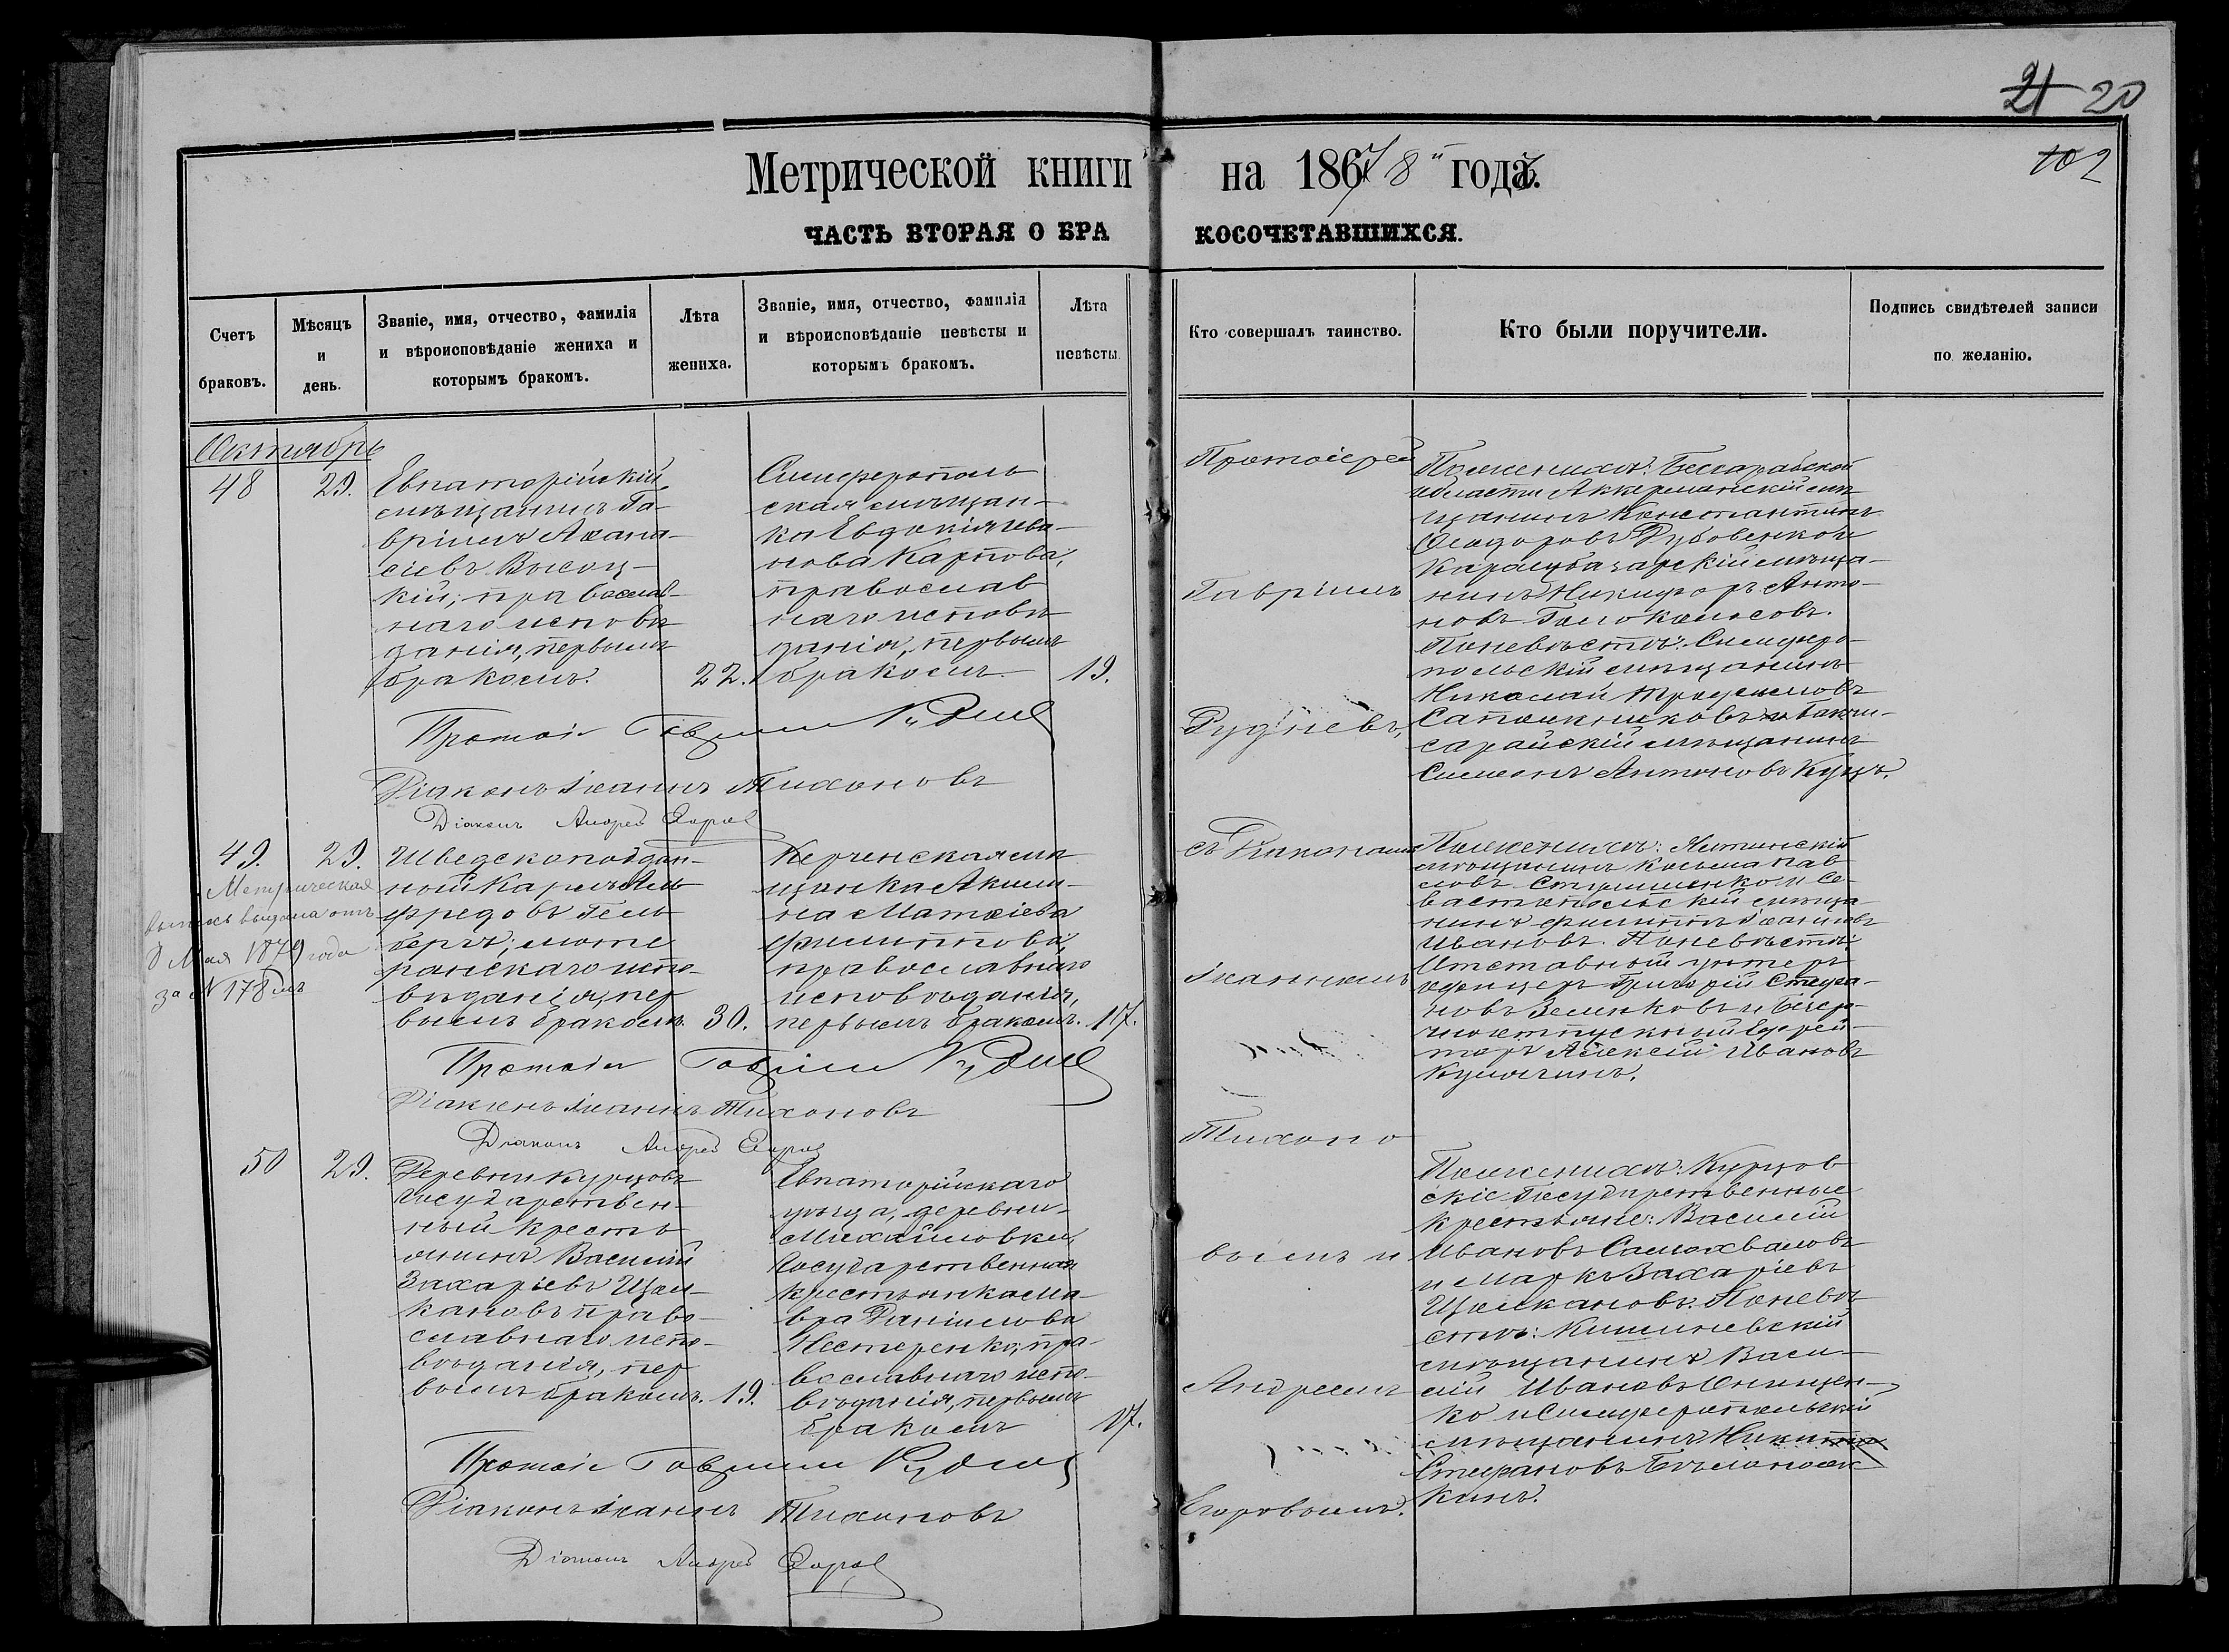 21 20
102
Метрической книги на 18678 года.
ЧАСТЬ ВТОРАЯ О БРАКОСОЧЕТАВШИХСЯ.
Счетъ браковъ.
Мѣсяцъ и день.
Званіе, имя, отчество, фамилія и вѣроисповѣданіе жениха и которымъ бракомъ.
Лѣта жениха.
Званіе, имя, отчество, фамилія и вѣроисповѣданіе невѣсты и которымъ бракомъ.
Лѣта невѣсты.
Кто совершалъ таинство.
Кто были поручители.
Подпись свидѣтелей записи по желанію.
Октябрь
48
29.
Евпаторійскій
мѣщанинъ Га-
вріилъ Аѳана-
сіевъ Высоц-
кій; православ-
наго исповѣ
данія, первымъ
бракомъ.
22.
Симферополь
ская мѣщан-
ка Евдокія Ива-
нова Карпова,
православ
наго исповѣ
данія, первымъ
бракомъ.
19.
Протоіерей
Гавріилъ
Рудневъ,
По женихѣ: Бессарабской
области Аккерманскій мѣ
щанинъ Константинъ
Ѳеодоровъ Дубовенко и
Карасубазарскій мѣща-
нинъ Никифоръ Анто-
новъ
По невѣстѣ: Симферо-
польскій мѣщанинъ
Николай
Сапожниковъ и Бахчи-
сарайскій мѣщанинъ
Симеонъ Антоновъ Куць.
Протоіе Гавріилъ Рудневъ
Діаконъ Іоаннъ Тихоновъ
Діаконъ Андрей Егоровъ
49.
29.
Метрическая
выпись выдана отъ
8 Мая 1879 года
за № 178мъ
Шведскоподдан-
ный Карлъ Аль
фредовъ Гель
бергъ; люте
ранскаго испо-
вѣданія, пер
вымъ бракомъ.
30.
Керченская мѣ
щанка Акили-
на Матѳіева
Филиппова,
православнаго
исповѣданія,
первымъ бракомъ.
17.
съ Діаконами
Іоанномъ
Тихоно
По женихѣ: Ялтинскій
мѣщанинъ Косьма Пав
ловъ и Се-
вастопольскій мѣща
нинъ Филиппъ Іоанновъ
Ивановъ. По невѣстѣ:
Отставный унтеръ
офицеръ Григорій Стефа-
новъ Зелинковъ и безср-
чноотпускный Ефрей-
торъ Алексѣй Ивановъ
Кулочинъ.
Протоіе Гавріилъ Рудневъ
Діаконъ Іоаннъ Тихоновъ
Діаконъ Андрей Егоровъ
50
29.
Деревни Курцовъ
Государствен-
ный кресть
янинъ Василій
Захаріевъ Щел-
кановъ право-
славнаго испо-
вѣданія, пер
вымъ бракомъ.
19.
Евпаторійскаго
уѣзда, деревни
Михайловки,
Государственная
крестьянка Ма-
вра Даніилова
Нестеренко, пра-
вославнаго испо-
вѣданія, первымъ
бракомъ
17.
вымъ и
Андреемъ
Егоровымъ.
По женихѣ: Курцов
скіе Государственные
крестьяне: Василій
Ивановъ Самохваловъ
и Маркъ Захаріевъ
Щелкановъ. По невѣ
стѣ: Кишиневскій
мѣщанинъ Васи-
лій Ивановъ Онищен-
ко и Симферопольскій
мѣщанинъ Никита
Стефановъ Бѣлонож
кинъ.
Протоіе Гавріилъ Рудневъ
Діаконъ Іоаннъ Тихоновъ
Діаконъ Андрей Егоровъ